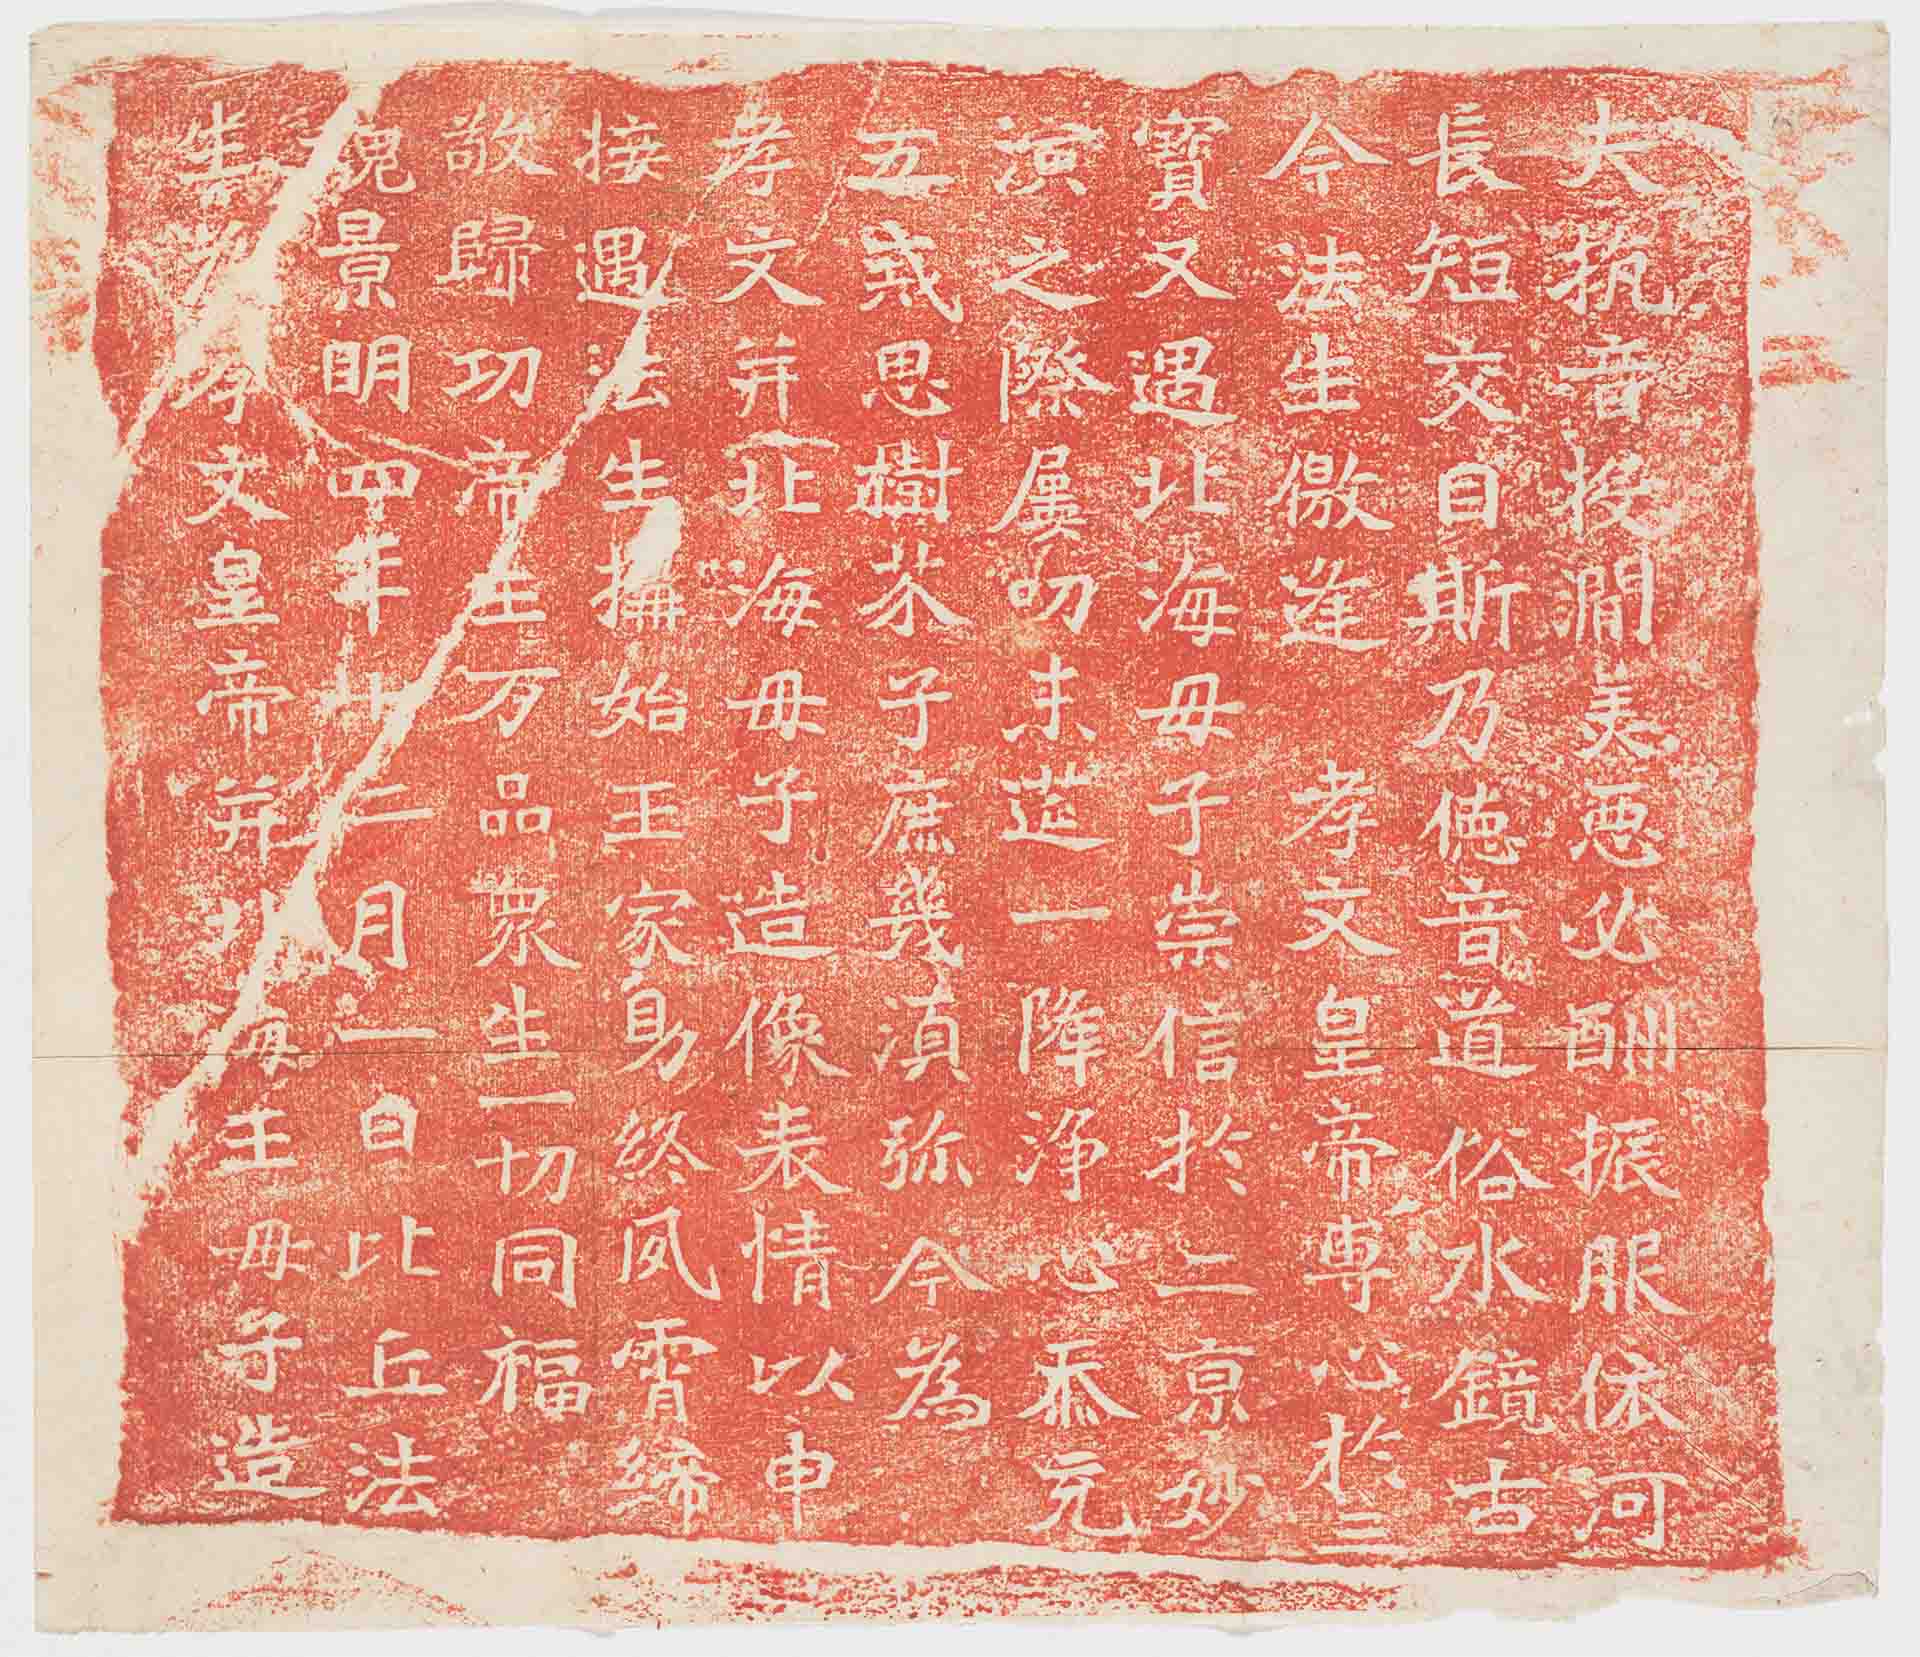 夫抗音投澗美惡必酬振服依河
長短交目斯乃德音道俗水鏡古
今法生儌逢 孝文皇帝專心於三
寶又遇北海母子崇信於二京妙
演之際屢叨末筵一降浄心忝充
五戒思樹芥子庶幾須弥今為
孝文并北海母子造像表情以申
接遇法生構始王家助終夙霄締
敬歸功帝王万品眾生一切同福
魏景明四年十二月一日比丘法
生為孝文皇帝并北海王母子造